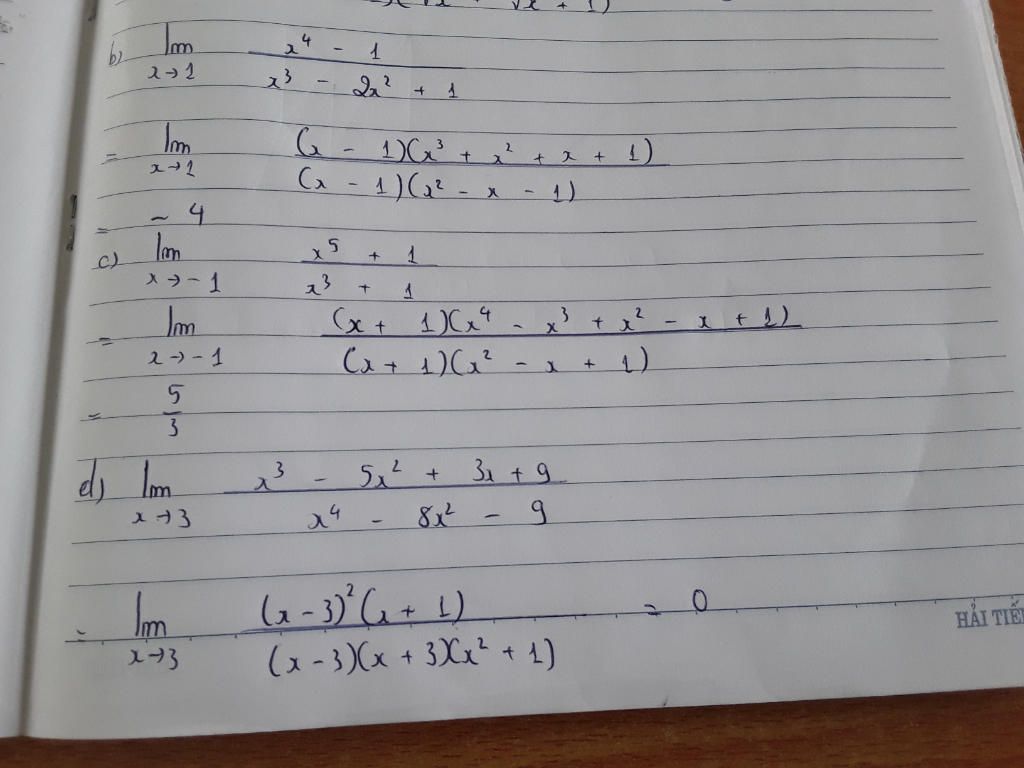 b) lim x→1 (x⁴ - 1)/(x³ - 2x² + 1)
= lim x→1 ((x - 1)(x³ + x² + x + 1))/((x - 1)(x² - x - 1))
= - 4
c) lim x→-1 (x⁵ + 1)/(x³ + 1)
= lim x→-1 ((x + 1)(x⁴ - x³ + x² - x + 1))/((x + 1)(x² - x + 1))
= 5/3
d) lim x→3 (x³ - 5x² + 3x + 9)/(x⁴ - 8x² - 9)
= lim x→3 ((x - 3)²(x + 1))/((x - 3)(x + 3)(x² + 1)) = 0
HẢI TIẾ